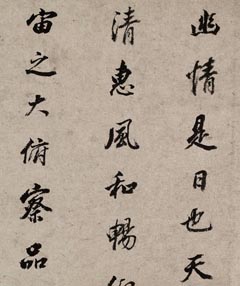 幽情是日也天
清惠風和暢仰
宙之大俯察品